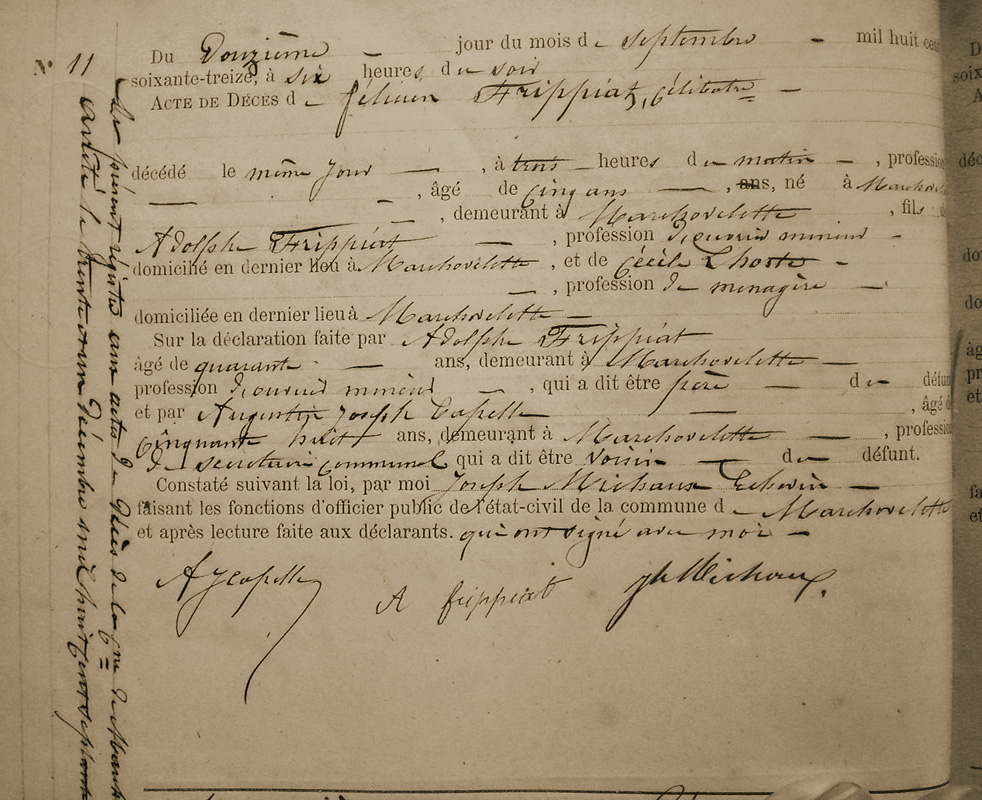 N° 11
Du Douzième jour du mois de septembre mil huit cent
soixante-treize, à six heures du soir
ACTE DE DÉCÈS de félicien Frippiat, célibatre
décédé le même jour, à trois heures du matin, profession
, âgé de cinq ans, ans, né à Marchovelette
, demeurant à Marchovelette, fils
Adolphe Frippiat, profession d'ouvrier mineur
domicilié en dernier lieu à Marchovelette, et de Cécile L'hoste
, profession de menagère
domiciliée en dernier lieu à Marchovelette
Sur la déclaration faite par Adolphe Frippiat
âgé de quarante ans, demeurant à Marchovelette
profession d'ouvrier mineur, qui a dit être père du défunt
et par Augustin Joseph Capelle, âgé de
Cinquante huit ans, demeurant à Marchovelette, profession
de secretaire communal qui a dit être voisin du défunt.
Constaté suivant la loi, par moi Joseph Michaux Echevin
faisant les fonctions d'officier public de l'état-civil de la commune de Marchovelette
et après lecture faite aux déclarants. qui ont signé avec moi
A J Capelle
A frippiat
Jh Michaux
Le présent registre aux actes de Décès de la Cne de March
arrêté le trente et un Décembre mil huit cent septante